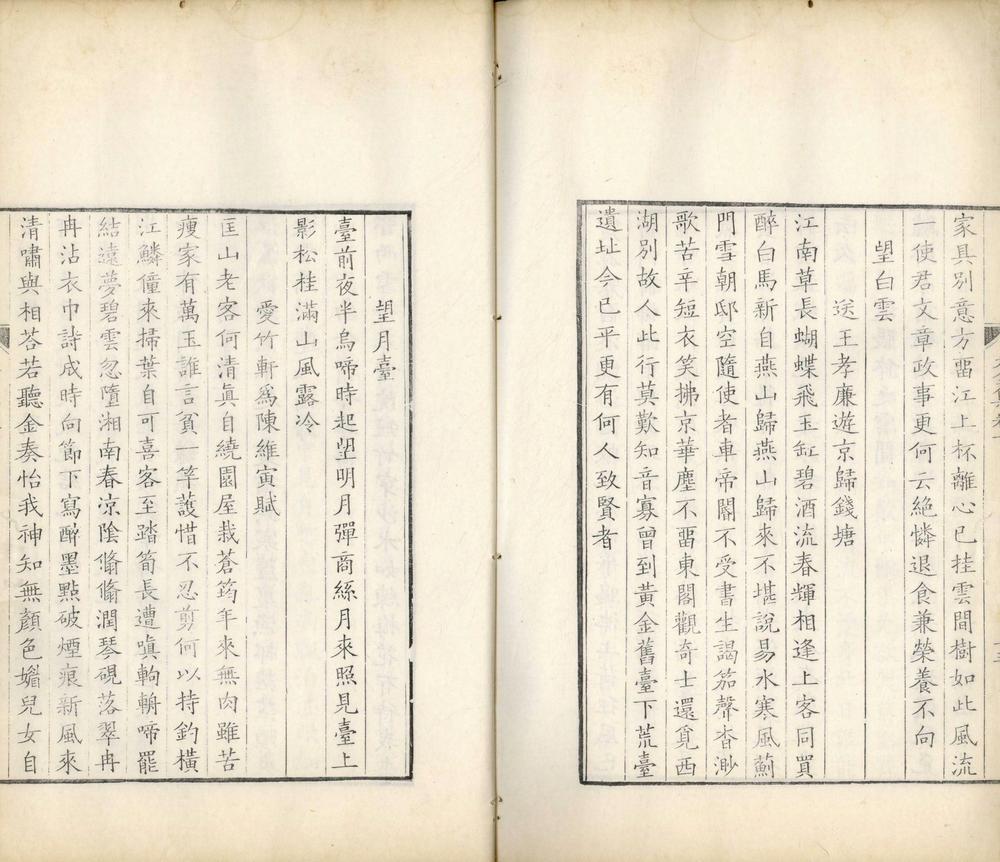 家具別意方畱江上杯離心已挂雲間樹如此風流
一使君文章政事更何云絶憐退食兼榮養不向
望白雲
送王孝廉遊京歸錢塘
江南草長蝴蝶飛玉缸碧酒流春輝相逢上客同買
醉白馬新自燕山歸燕山歸來不堪說易水寒風薊
門雪朝邸空隨使者車帝閽不受書生謁笳聲杳渺
歌苦辛短衣笑拂京華塵不畱東閣觀奇士還覓西
湖別故人此行莫歎知音寡曾到黃金舊臺下荒臺
遺址今已平更有何人致賢者
望月臺
臺前夜半烏啼時起望明月彈商絲月來照見臺上
影松桂滿山風露冷
愛竹軒爲陳維寅賦
匡山老客何清眞自繞園屋栽蒼筠年來無肉雖苦
瘦家有萬玉誰言貧一竿護惜不忍剪何以持釣橫
江鱗僮來掃葉自可喜客至踏筍長遭嗔輈輈啼罷
結遠夢碧雲忽墮湘南春涼陰翛翛潤琴硯落翠冉
冉沾衣巾詩成時向節下寫醉墨點破煙痕新風來
清嘯與相答若聽金奏怡我神知無顏色媚兒女自